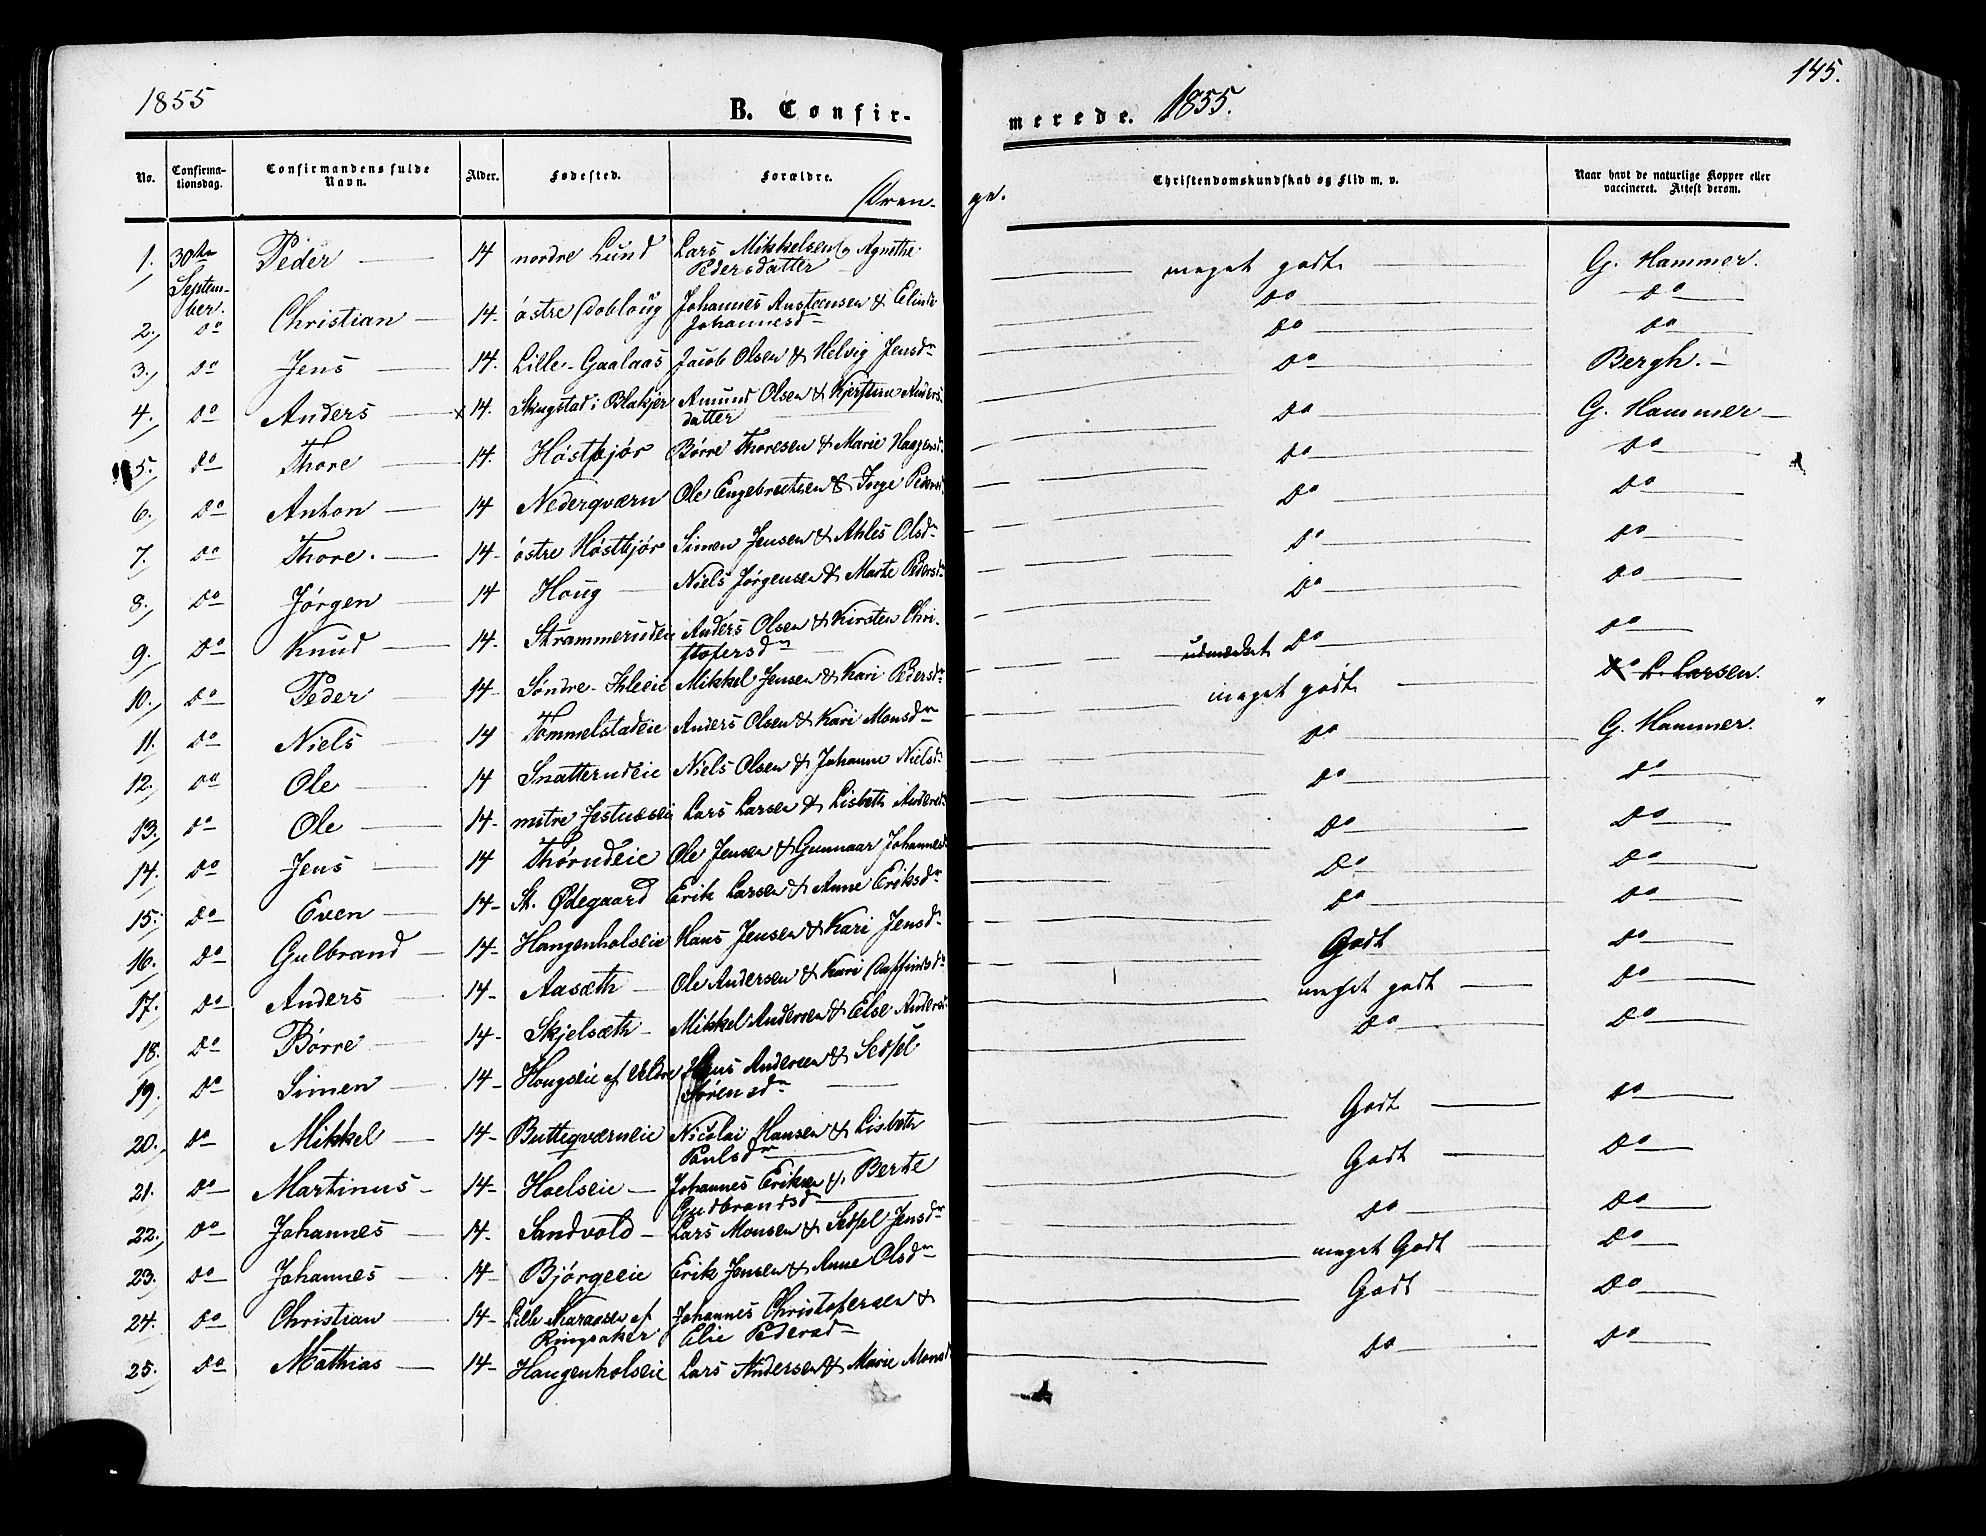 1855
B. Confirmerede. 1855.
145.
No. Confirmationsdag. Confirmandens fulde Navn. Alder. Fødested. Forældre. Christendomskundskab og Flid m. v. Naar havt de naturlige Kopper eller vaccineret. Attest derom.
Drenge.
1. 30te September. Peder 14 nordre Lund Lars Mikkelsen & Agnethe Pedersdatter meget godt G. Hammer.
2. do Christian 14 østre Dobloug Johannes Austensen & Eline Johannesd do do
3. do Jens 14. Lille-Gaalaas Jacob Olsen & Helvig Jensdr do do
4. do Anders x 14. Skugstad i Blakjer Amund Olsen & Kjerstine Andersdatter do Bergh.
5. do Thore 14. Høstbjør Børre Thoresen & Marie Haagensd. do G. Hammer
6. do Anton 14 Nederqværn Ole Engebretsen & Inge Pedersd do do
7. do Thore. 14 østre Høstbjør Simen Jensen & Ahles Olsdr do do
8. do Jørgen 14 Houg Niels Jørgensen & Marte Pedersdr do do
9. do Knud 14. Strammerudeie Anders Olsen & Kirsten Christofersdr do do
10. do Peder 14 Søndre- Mikkel Jensen & Kari Pedersdr udmærket do do
11. do Niels 14 Tommelstadeie Anders Olsen & Kari Monsdr meget godt do L. Larsen.
12. do Ole 14 Snatterudeie Niels Olsen & Johanne Nielsdr do G. Hammer.
13. do Ole 14 mitre Lars Larsen & Lisbeth Andersd do do
14. do Jens 14 Thørudeie Ole Jensen & Gunnaar Johannesd do do
15. do Even 14 St. Ødegaard Erik Larsen & Anne Eriksdr do do
16. do Gulbrand 14 Hangenholseie Hans Jensen & Kari Jensdr do do
17. do Anders 14 Aasæth Ole Andersen & Kari Godt do
18. do Børre 14 Skjelsæth Mikkel Andersen & Else Andersd meget godt do
19. do Simen 14 Hougseie af Veldre Hans Andersen & Sedsel Sørensdr do do
20. do Mikkel 14 Butteqværneie Nicolai Hansen & Lisbeth Paulsdr Godt do
21. do Martinus 14 Hoelseie Johannes Eriksen & Berte Gudbrandsd Godt do
22. do Johannes 14 Sandvold Lars Monsen & Sedsel Jensdr do do
23. do Johannes 14 Bjørgeeie Erik Jensen & Anne Olsdr meget Godt do
24. do Christian 14 Lille af Ringsaker Johannes Christofersen & Elie Pedersd Godt do
25. do Mathias 14 Hangenholseie Lars Andersen & Marie Monsd do do